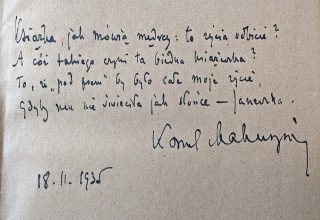 Książka, jak mówią mędrcy: to życia odbicie?
A cóż takiego czyni ta biedna książeczka?
To, że „pod psem" by było całe moje życie,
Gdyby mu nie świeciła jak słońce — Janeczka.
Kornel Makuszyński
18. II. 1935